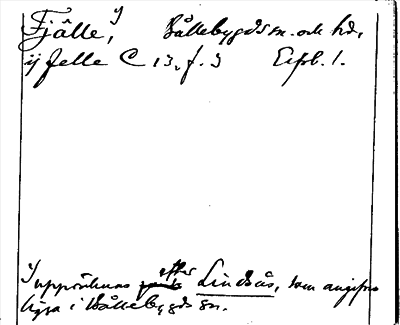 Fjälle, y Bållebygds sn. och hd.
ij felle C 13, f. 3 Elfsb. l.
y upptäcknas efter Lindås, som angifves
ligga i Bållebygds sn.